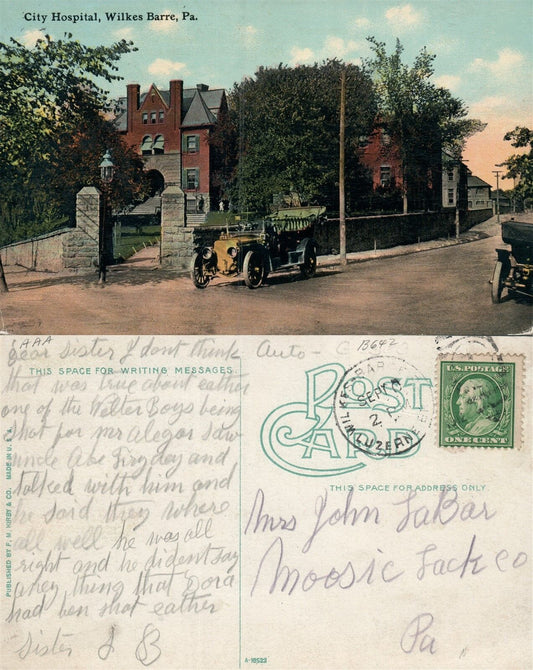 City Hospital, Wilkes Barre, Pa.
AAA
Auto -
B642
Dear Sister I dont think
THIS SPACE FOR WRITING MESSAGES
that was true about eather
one of the Velter Boys being
shot for mr alegar saw
uncle Abe and
talked with him and
he said they where
all well he was all
right and he dident say
aney thing that Dora
had ben shot eather
Sister I B
PUBLISHED BY F. M. KIRBY & CO. MADE IN U.S.A.
POST
CARD
WILKES-BARRE
SEP
2
LUZERNE
U.S. POSTAGE
ONE CENT
THIS SPACE FOR ADDRESS ONLY
Mrs John LaBar
Moosic Lack Co
Pa
A-10523